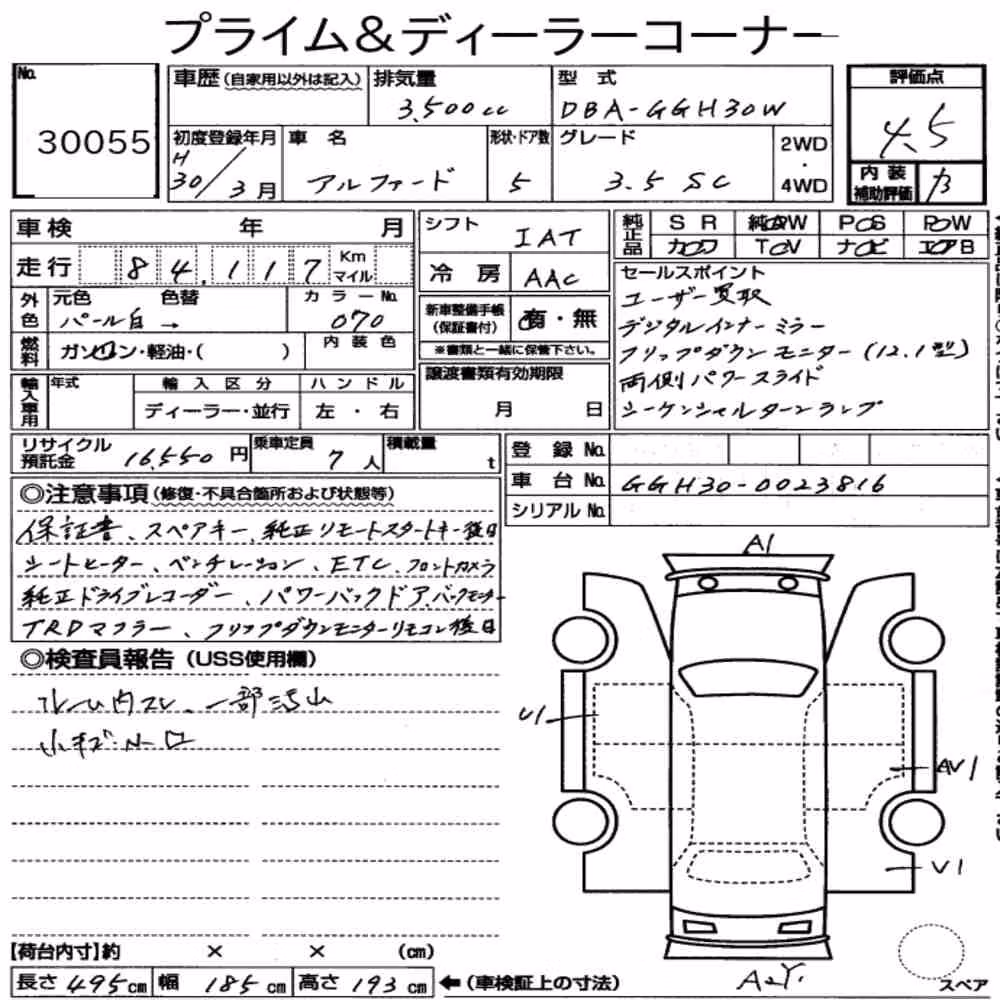 プライム&ディーラーコーナー
No. 30055
車歴(自家用以外は記入) 排気量 3,500cc 型式 DBA-GGH30W
評価点 4.5
初度登録年月 H30/3月 車名 アルファード 形状・ドア数 5 グレード 3.5 SC 2WD・4WD
内装補助評価 B
車検 年 月
走行 84,117 Km マイル
外色 元色 パール白 → 色替 カラーNo. 070
燃料 ガソリン・軽油・( ) 内装色
輸入車用 年式 輸入区分 ディーラー・並行 ハンドル 左・右
シフト IAT
冷房 AAC
新車整備手帳(保証書付) 有・無
※書類と一緒に保管下さい。
譲渡書類有効期限 月 日
純正品 SR 純AW PS PW
カワ TV ナビ エアB
セールスポイント
ユーザー買取
デジタルインナーミラー
フリップダウンモニター(12.1型)
両側パワースライド
シーケンシャルターンランプ
リサイクル預託金 16,550円 乗車定員 7人 積載量 t
登録No.
車台No. GGH30-0023816
シリアルNo.
◎注意事項(修復・不具合箇所および状態等)
保証書、スペアキー、純正リモートスタートキー後日
シートヒーター、ベンチレーション、ETC、フロントカメラ
純正ドライブレコーダー、パワーバックドア、バックモニター
TRDマフラー、フリップダウンモニターリモコン後日
◎検査員報告(USS使用欄)
内スレ、一部汚れ
小キズ
A1
U1
AV1
V1
A2Y.
スペア
【荷台内寸】約 × × (cm)
長さ 495cm 幅 185cm 高さ 193cm ←(車検証上の寸法)